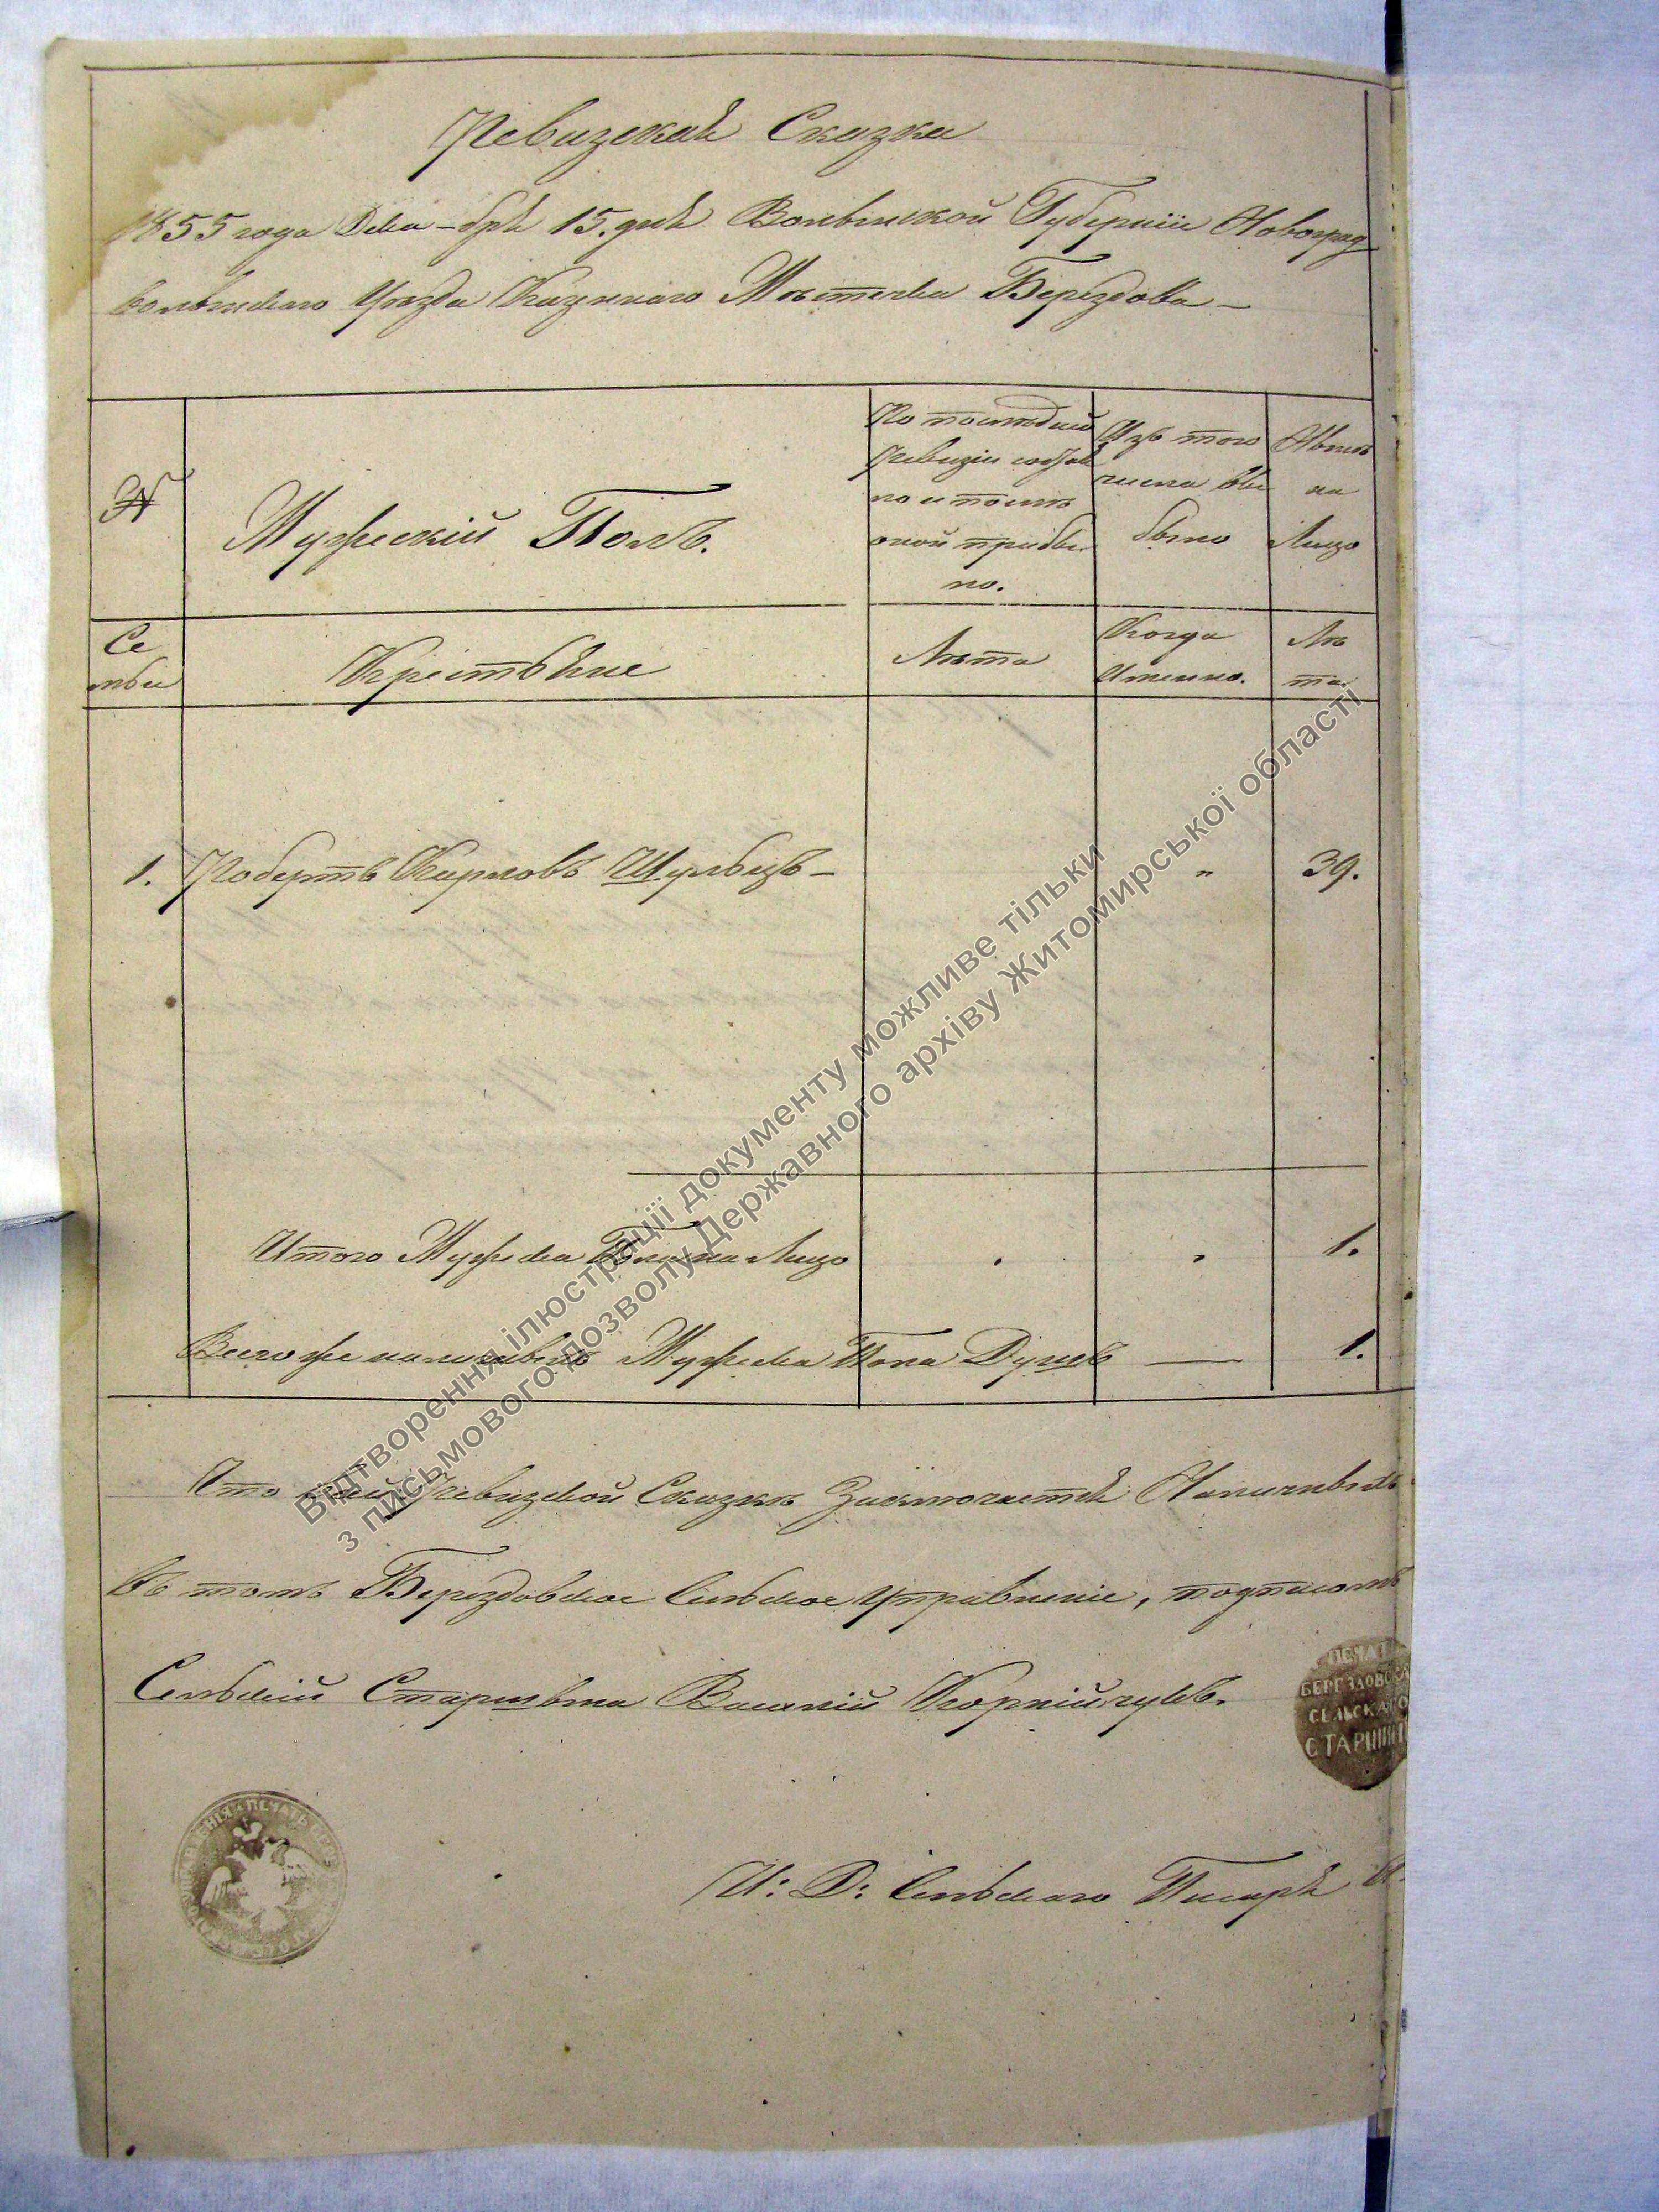 Ревизская Сказка
1855 года Дека-бря 15. дня Волынской Губернiи Новоград
волынскаго Уѣзда Казеннаго Мѣстечка Берездова -
№
Мужескiй Полъ.
По последней
Ревизiи состоя
ло и после
оной прибы
ло.
Изъ того
числа вы
было
Нынѣ
на
Лицо
Се
мьи
Крестьяне
Лѣта
Когда
Именно.
Лѣ
та.
1. Робертъ Карловъ Шульцъ - " 39.
Итого Мужеска Пола на Лицо . " 1.
Всего же наличныхъ Мужеска Пола Душъ — 1.
Что въ сей Ревизской Сказкѣ Заключается
Въ томъ Берездовское Сельское Управленiе,
Сельскiй Старшина Василiй Корнiйчукъ.
ПЕЧАТ
БЕРЕЗДОВСКА
СЕЛЬСКАГО
СТАРШИН
И: Д: Сельскаго Писаря
Відтворення ілюстрації документу можливе тільки
з письмового дозволу Державного архіву Житомирської області